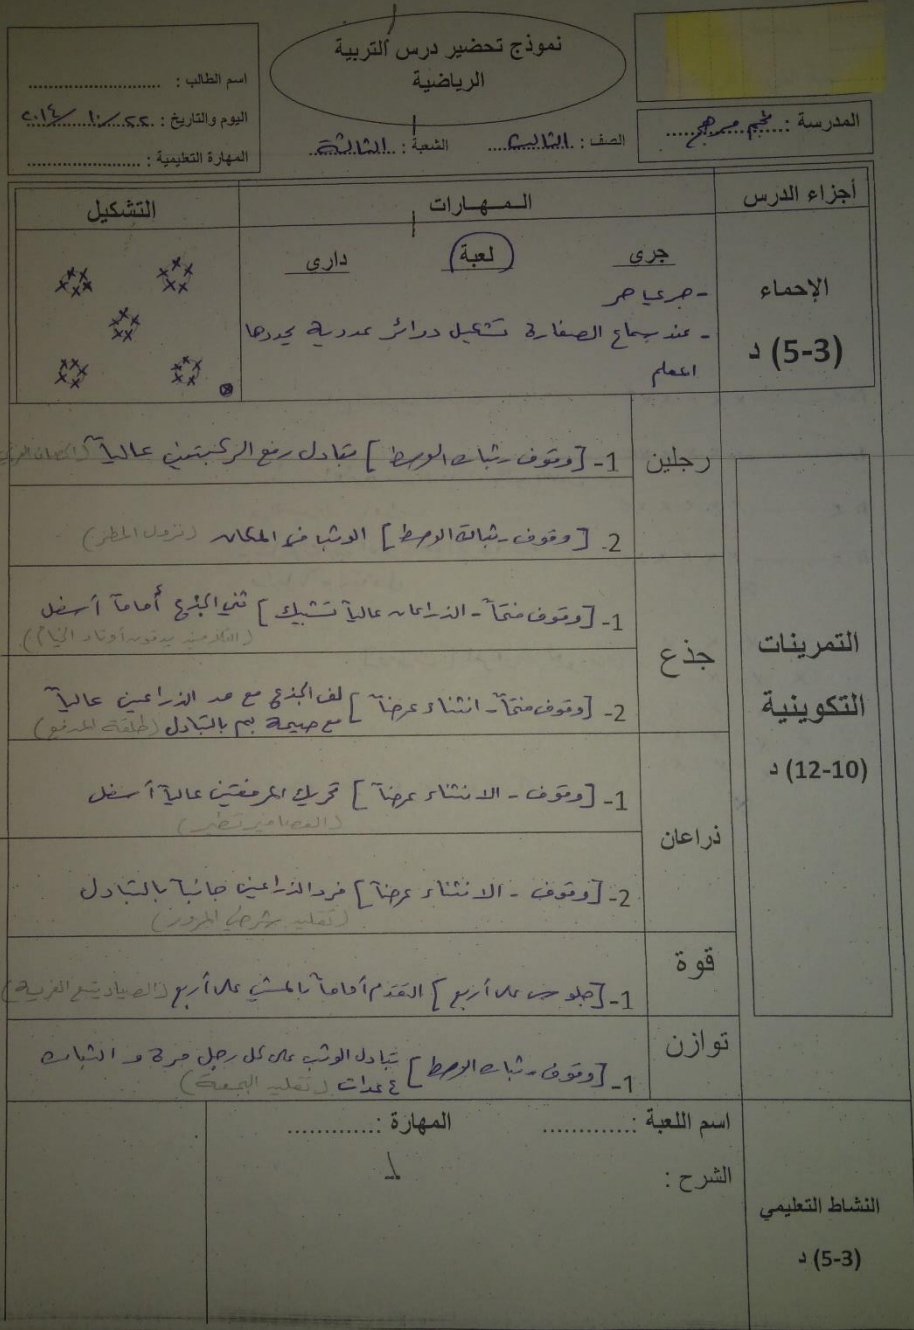 نموذج تحضير درس التربية
الرياضية
المدرسة :
الصف : الثالث
الشعبة : الثالثة
اسم الطالب :
اليوم والتاريخ : ٢٢/١٠/٢٠١٤
المهارة التعليمية :
أجزاء الدرس
المــهــارات
التشكيل
الإحماء
(5-3) د
جري
لعبة
داري
- جري حر
- عند سماع الصفارة تشكيل دوائر عددية يحددها
المعلم
التمرينات
التكوينية
(12-10) د
رجلين
1- [وقوف ـ ثبات الوسط] تبادل رفع الركبتين عالياً
2- [وقوف ـ ثبات الوسط] الوثب في المكان (نزول المطر)
جذع
1- [وقوف فتحاً - الذراعان عالياً تشبيك] ثني الجذع أماماً أسفل
2- [وقوف فتحاً - انثناء عرضاً] لف الجذع مع مد الذراعين عالياً
مع صيحة بم بالتبادل (طلقة المدفع)
ذراعان
1- [وقوف - الانثناء عرضاً] تحريك المرفقين عالياً أسفل
(العصافير تطير)
2- [وقوف - الانثناء عرضاً] فرد الذراعين جانباً بالتبادل
(تقليد شرطي المرور)
قوة
1- [جلوس على أربع] التقدم أماماً بالمشي على أربع (الصياد يتبع الفريسة)
توازن
1- [وقوف ـ ثبات الوسط] تبادل الوثب على كل رجل مرة و الثبات
٤ عدات (تقليد البجعة)
النشاط التعليمي
(5-3) د
اسم اللعبة :
المهارة :
الشرح :